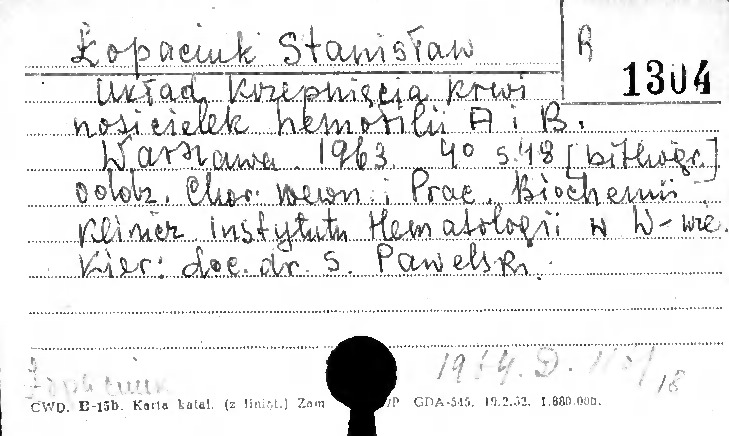 Łopaciuk Stanisław
R
1304
Układ krzepnięcia krwi
nosicielek hemofilii A i B.
Warszawa 1963. 4° s. 48 [bibliogr.]
Oddz. Chor. wewn. i Prac. Biochemii
Klinicz. Instytutu Hematologii w W-wie.
Kier: doc. dr. S. Pawelski.
Łopaciuk
1964. D. /18
CWD. E-15b. Karta katal. (z liniat.) Zam GDA-545. 19.2.52. 1.880.000.